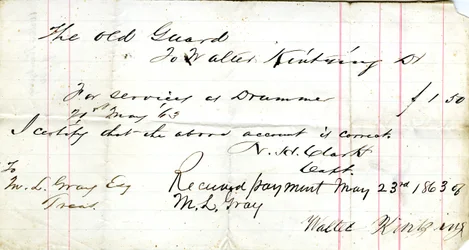 The Old Guard
To Walter Kintzing Dr
For services as Drummer $1.50
21st May '63
I certify that the above account is correct.
N. H. Clark
Capt.
To
M. L. Gray Esq
Treas.
Received payment May 23rd 1863 of
M. L. Gray
Walter Kintzing